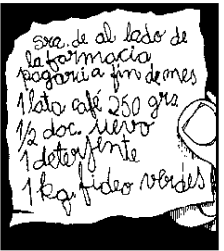 sra. de al lado de
la farmacia
pagaria fin de mes
1 lata café 250 grs
1/2 doc. uevo
1 deterjente
1 kg. fideo verdes